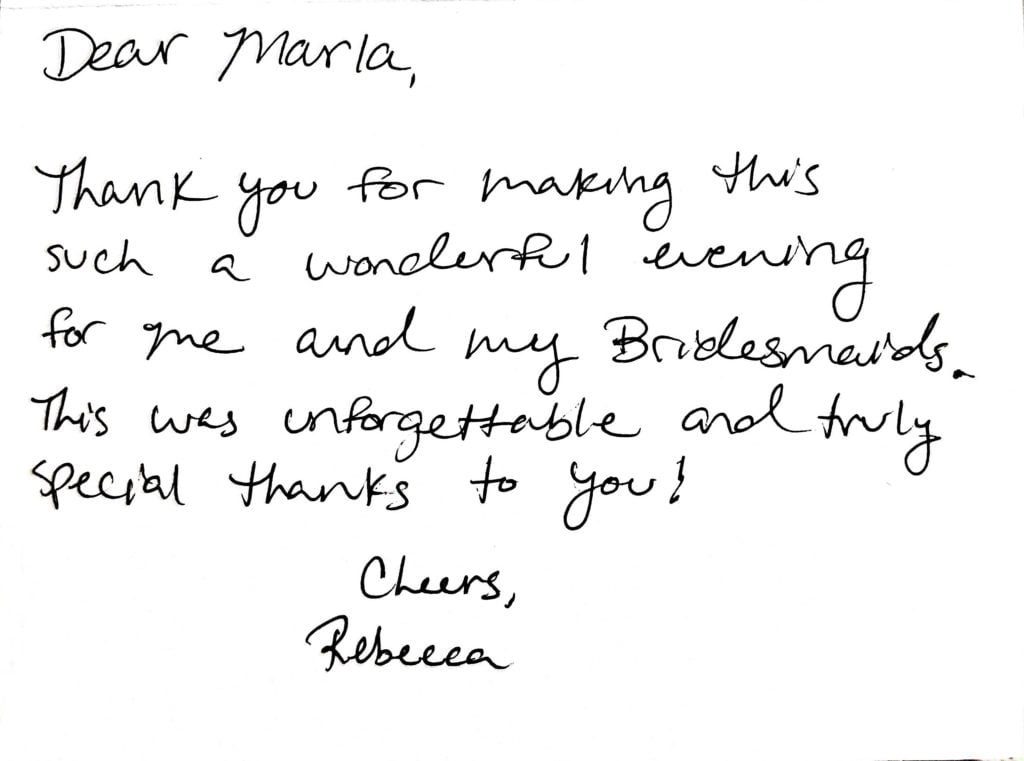 Dear Marla,
Thank you for making this
such a wonderful evening
for me and my Bridesmaids.
This was unforgettable and truly
special thanks to you!
Cheers,
Rebecca